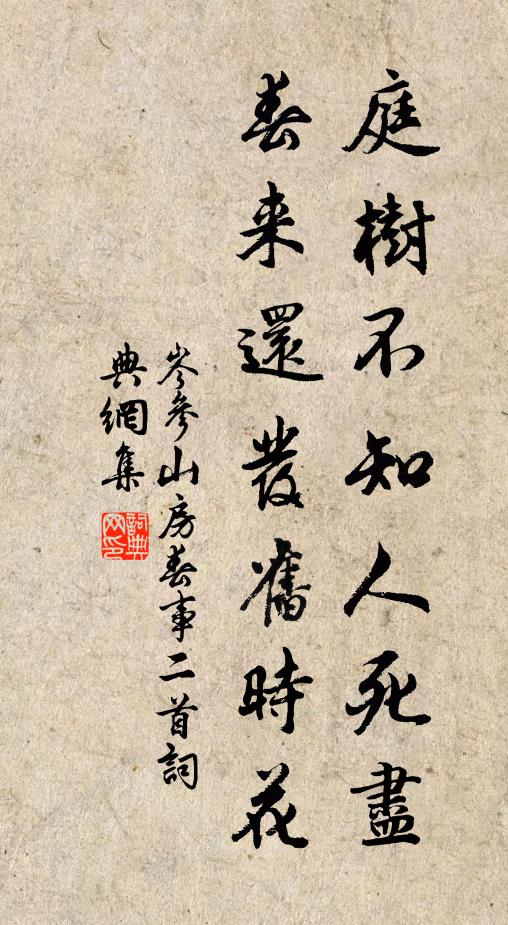 庭樹不知人死盡
春來還發舊時花
岑參山房春事二首詞
典網集
詞典網印